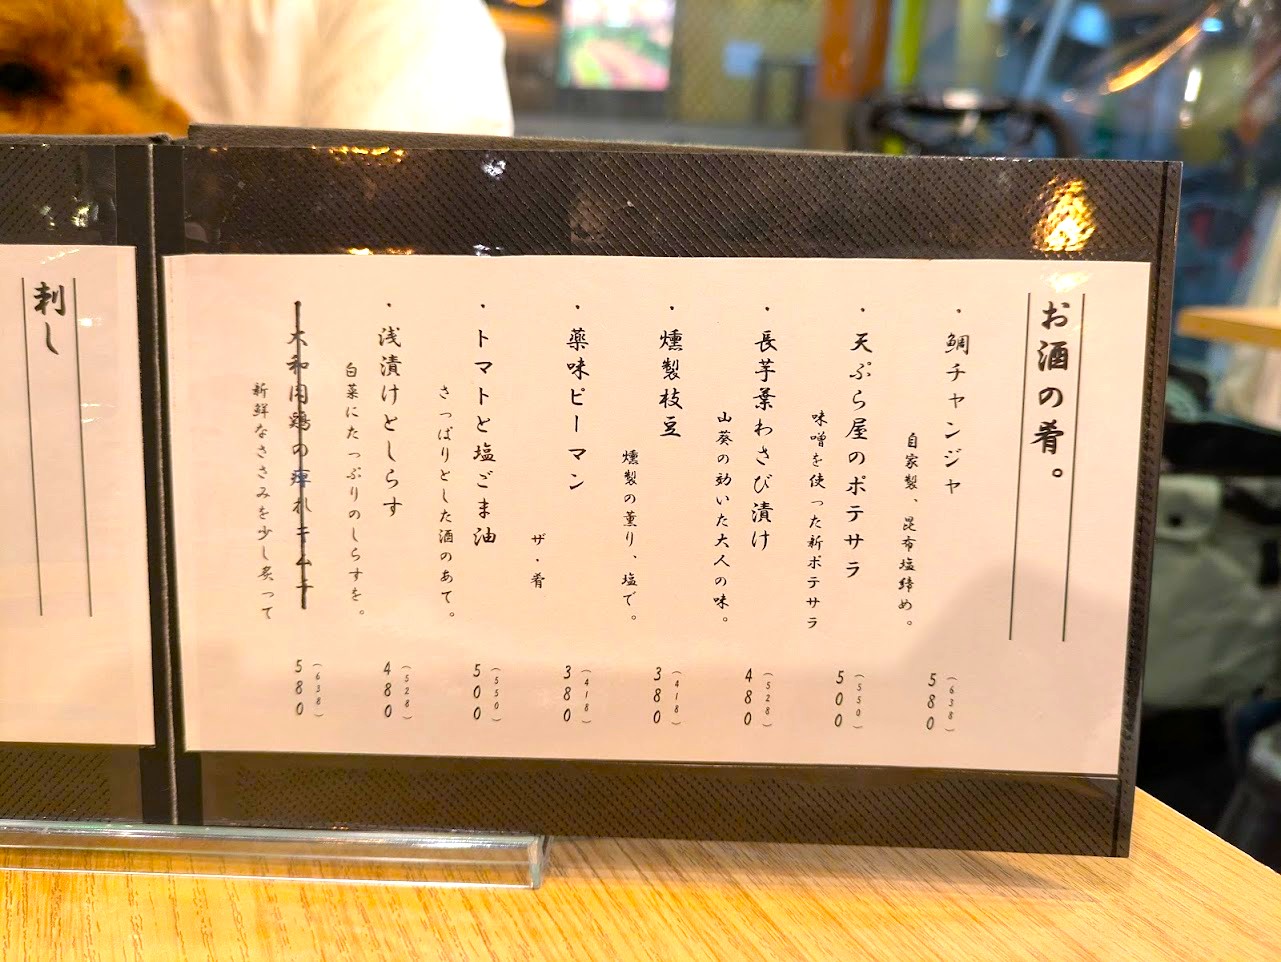 お酒の肴。
・鯛チャンジャ
自家製、昆布塩締め。
580
(638)
・天ぷら屋のポテサラ
味噌を使った新ポテサラ
500
(550)
・長芋葉わさび漬け
山葵の効いた大人の味。
480
(528)
・燻製枝豆
燻製の薫り、塩で。
380
(418)
・薬味ピーマン
ザ・肴
380
(418)
・トマトと塩ごま油
さっぱりとした酒のあて。
500
(550)
・浅漬けとしらす
白菜にたっぷりのしらすを。
480
(528)
大和肉鶏の痺れキムチ
新鮮なささみを少し炙って
580
(638)
刺し